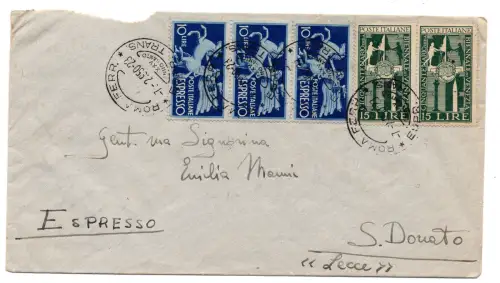 10 LIRE 10 LIRE 10 LIRE POSTE ITALIANE BIENNALE DI VENEZIA POSTE ITALIANE BIENNALE DI VENEZIA
POSTE ITALIANE ESPRESSO POSTE ITALIANE ESPRESSO POSTE ITALIANE ESPRESSO
15 LIRE 15 LIRE
ROMA FERR.
TRANS.
Gent.ma Signorina
Emilia Manni
ESPRESSO
S. Donato
"Lecce"